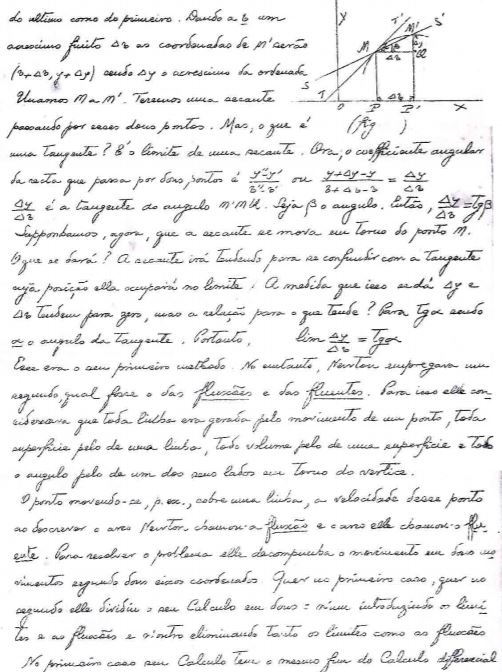 do ultimo como do primeiro. Dando a z um
acrescimo finito Δz as coordenadas de M' serão
(z+Δz, y+Δy) sendo Δy o acrescimo da ordenada
Unamos M a M'. Teremos uma secante
passando por esses dous pontos. Mas, o que é
(fig )
Y
T'
M'
S'
M
β
Δy
Δz
R
S
T
O
P
Δz
P'
X
uma tangente? É o limite de uma secante. Ora, o coefficiente angular
da recta que passa por dous pontos é y''-y'/z''-z' ou y+Δy-y/z+Δz-z = Δy/Δz
Δy/Δz é a tangente do angulo M'MR. Seja β o angulo. Então, Δy/Δz = Tgβ
Supponhamos, agora, que a secante se mova em torno do ponto M.
O que se dará? A secante irá tendendo para se confundir com a tangente
cuja posição ella occupará no limite. A medida que isso se dá Δy e
Δz tendem para zero, mas a relação para o que tende? Para Tgα sendo
α o angulo da tangente. Portanto, lim Δy/Δz = Tgα
Esse era o seu primeiro methodo. No emtanto, Newton empregava um
segundo, qual fosse o das fluxões e das fluentes. Para isso elle con-
siderava que toda linha era gerada pelo movimento de um ponto, toda
superficie pelo de uma linha, todo volume pelo de uma superficie e todo
o angulo pelo de um dos seus lados em torno do vertice.
O ponto movendo-se, p. ex., sobre uma linha, a velocidade desse ponto
ao descrever o arco Newton chamou-a fluxão e o arco elle chamou-o flu-
ente. Para resolver o problema elle decompunha o movimento em dous mo-
vimentos segundo dous eixos coordenados. Quer no primeiro caso, quer no
segundo elle dividiu o seu Calculo em dous: n'um introduzindo os limi-
tes e as fluxões e n'outro eliminando tanto os limites como as fluxões
No primeiro caso seu Calculo tem o mesmo fim do Calculo differencial